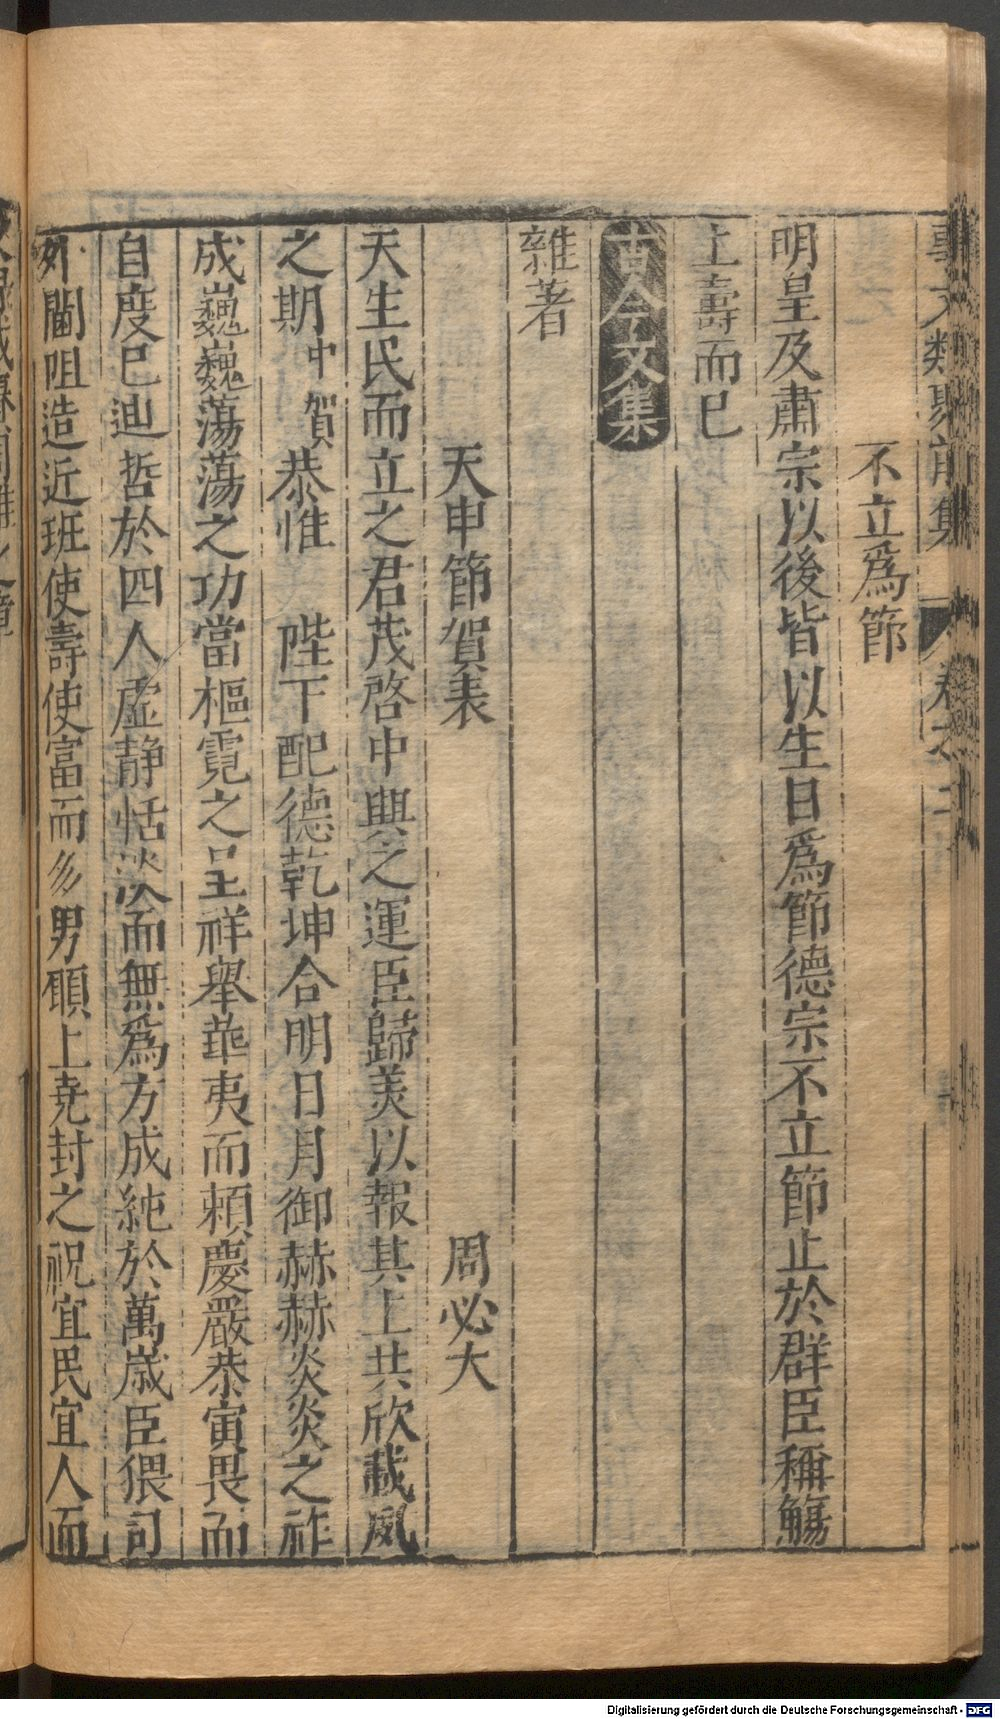 事文類聚前集 卷之二十
不立爲節
明皇及肅宗以後皆以生日爲節德宗不立節止於群臣稱觴
上壽而已
古今文集
雜著
天申節賀表 周必大
天生民而立之君茂啓中興之運臣歸美以報其上共欣載夙
之期中賀恭惟 陛下配德乾坤合明日月御赫赫炎炎之祚
成巍巍蕩蕩之功當樞霓之呈祥舉華夷而頼慶嚴恭寅畏而
自度已迪哲於四人虛静恬淡而無爲方成純於萬歲臣猥司
外閫阻造近班使壽使富而多男願上尭封之祝宜民宜人而
Digitalisierung gefördert durch die Deutsche Forschungsgemeinschaft - DFG